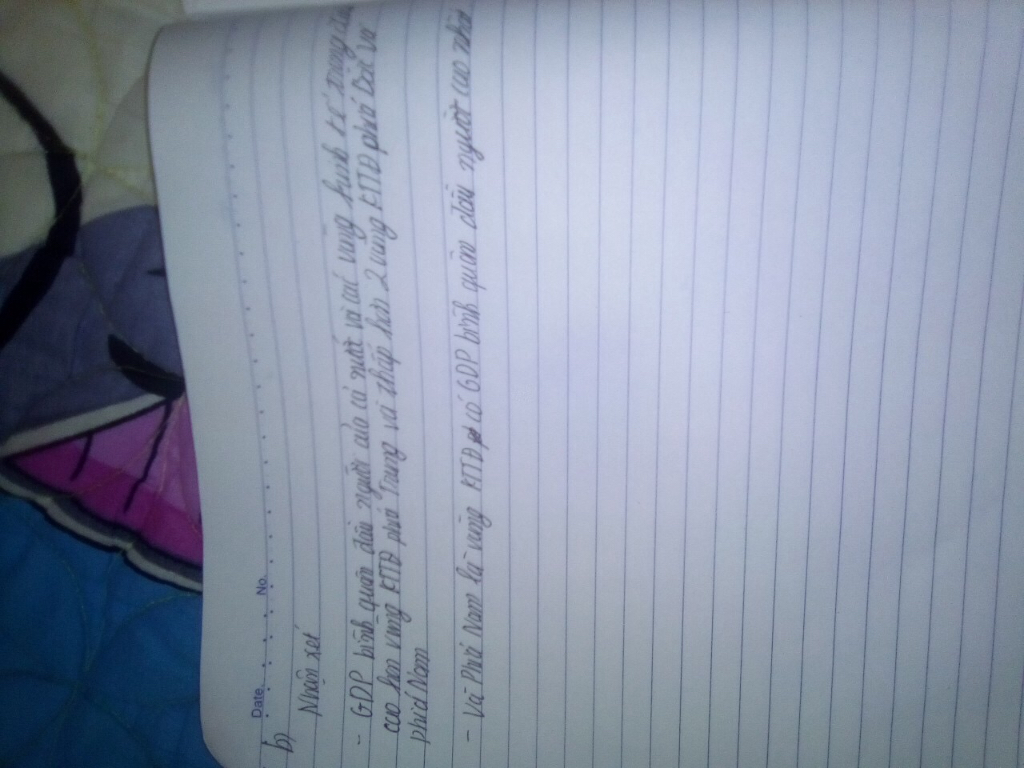 Date. No.
b)
Nhận xét
- GDP bình quân đầu người của cả nước và các vùng kinh tế trọng
cao hơn vùng KTTĐ phía Trung và thấp hơn 2 vùng KTTĐ phía Bắc và
phía Nam
- Và Phía Nam là vùng KTTĐ có GDP bình quân đầu người cao nhất